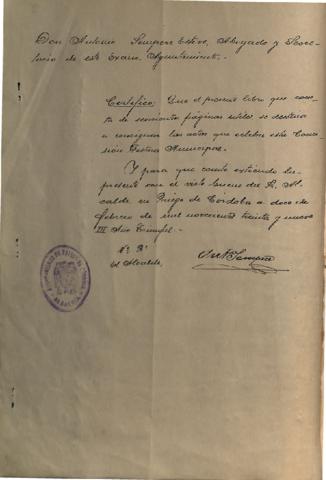 Don Antonio Sempere Esteve, Abogado y Secre-
tario de este Excmo. Ayuntamiento.-
Certifico: Que el presente libro que cons-
ta de sesenta páginas útiles se destina
a consignar las actas que celebre esta Co-
misión Gestora Municipal.
Y para que conste extiendo la
presente con el visto bueno del Sr. Al-
calde en Priego de Córdoba a doce de
febrero de mil novecientos treinta y nueve
III Año Triunfal.-
Vº Bº
el Alcalde,
Ant Sempere